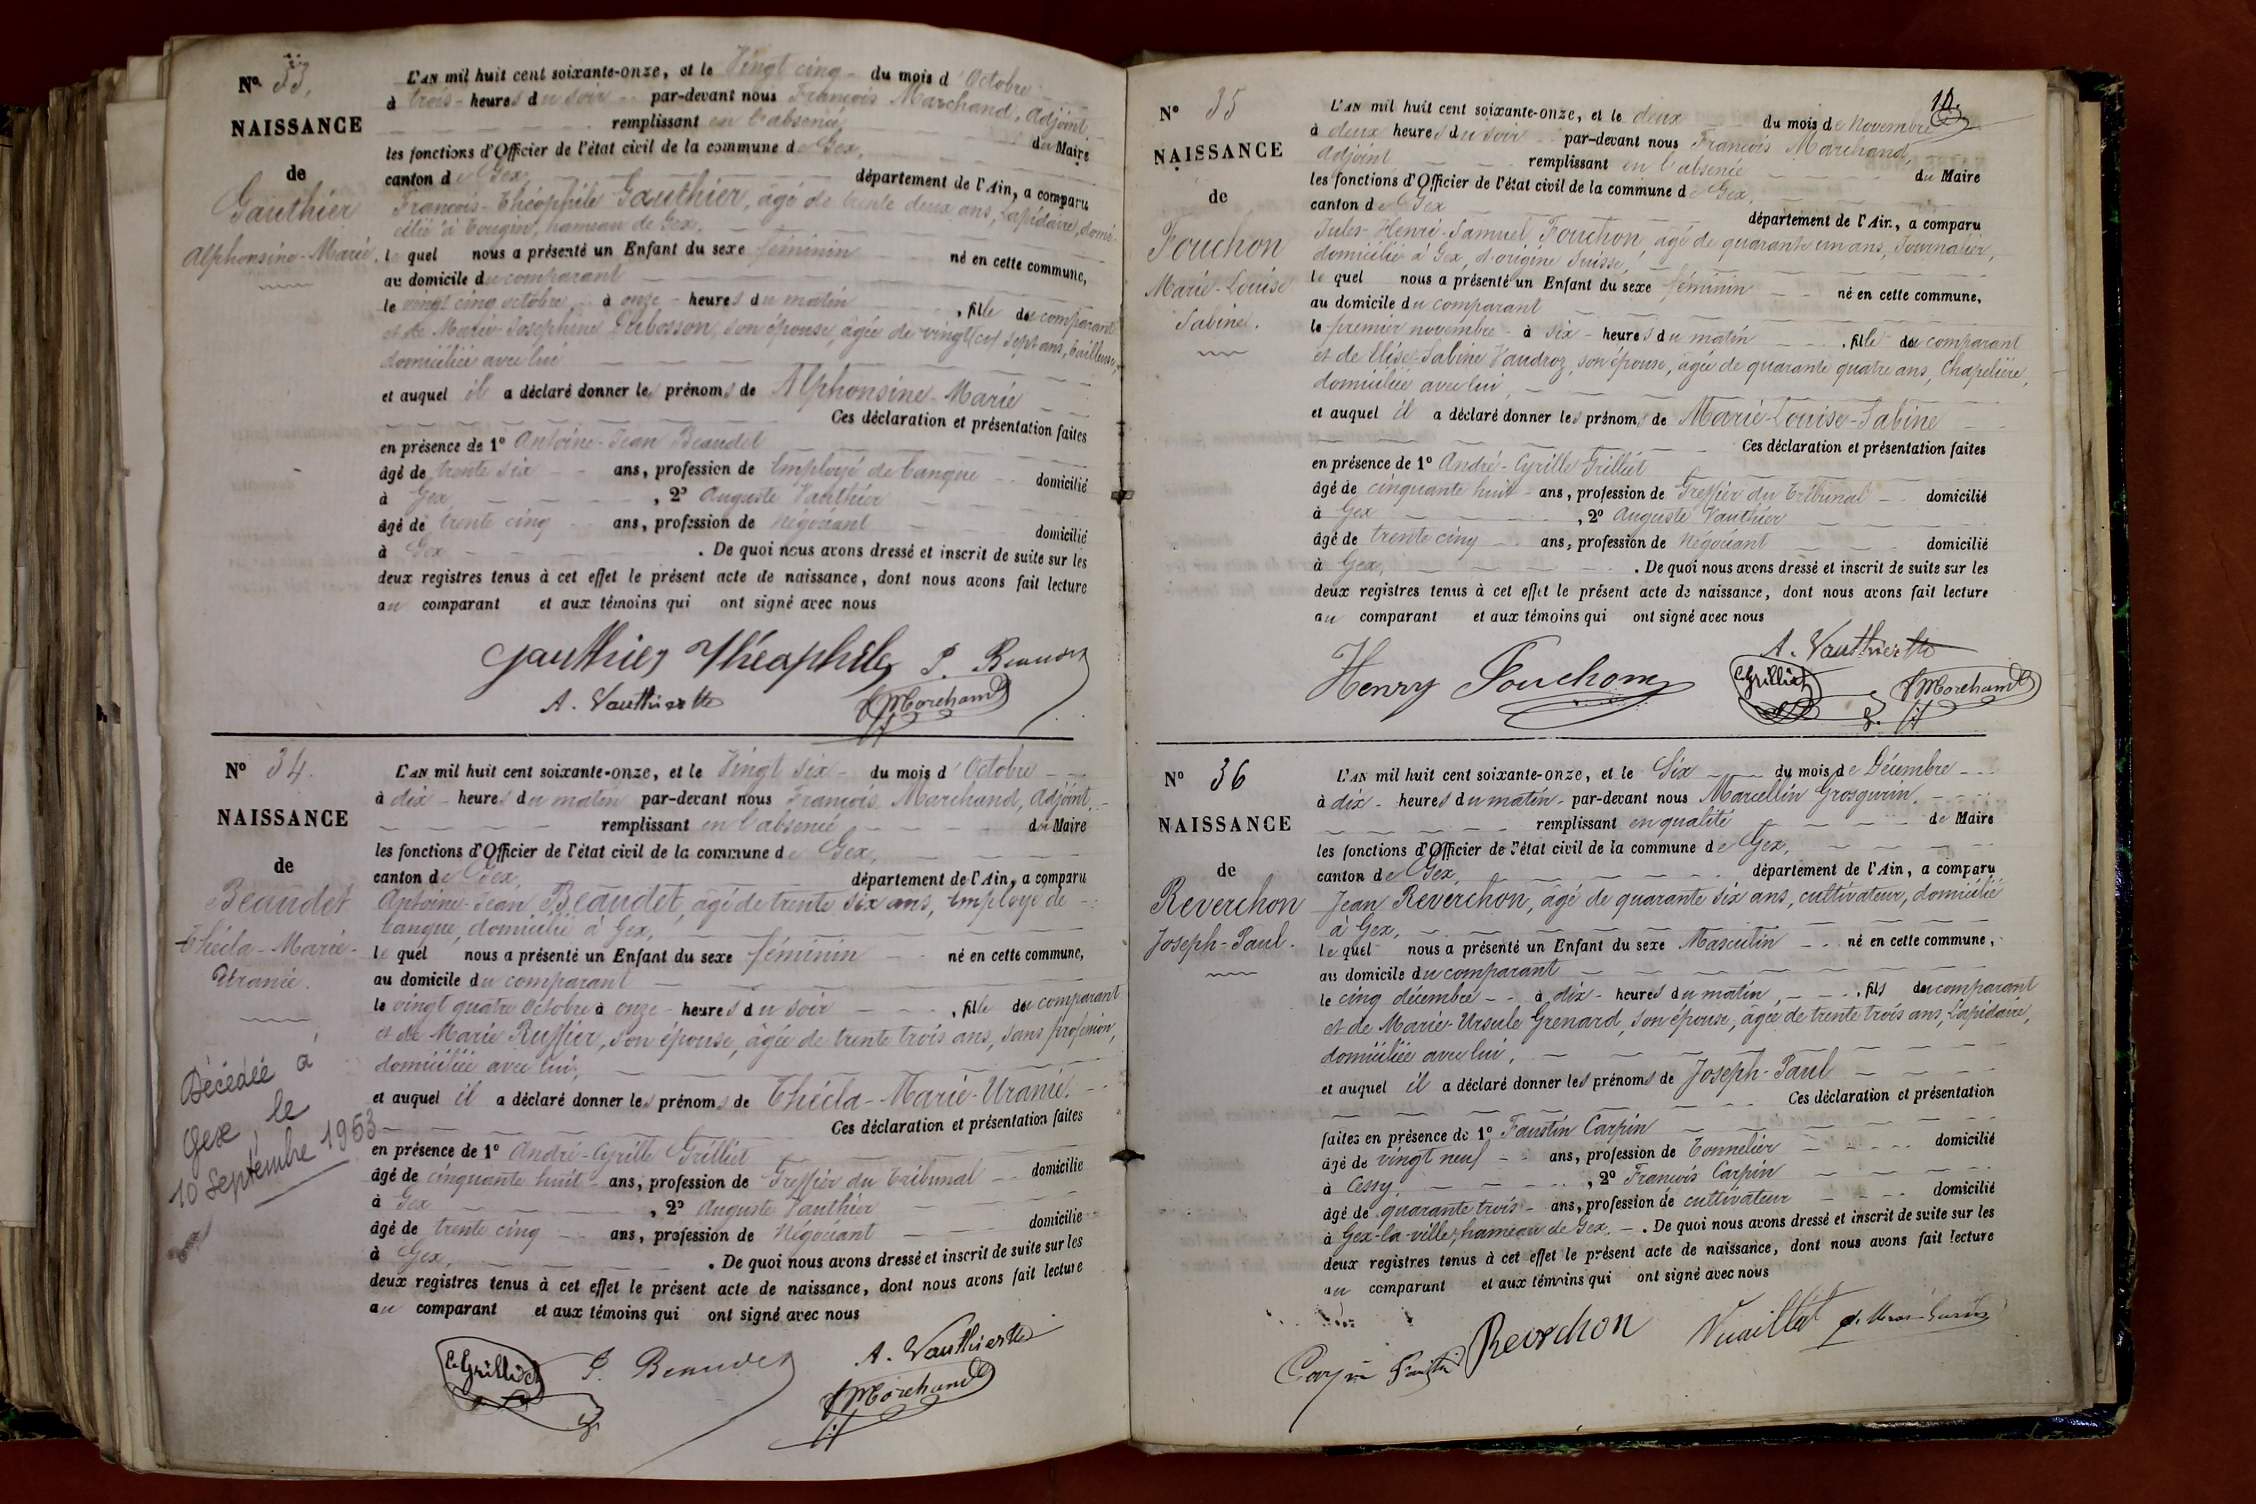 N° 33.
NAISSANCE
de
Gauthier
Alphonsine-Marie.
L'AN mil huit cent soixante-onze, et le Vingt cinq du mois d'Octobre
à trois heures du soir par-devant nous François Marchand, Adjoint
remplissant en l'absence du Maire
les fonctions d'Officier de l'état civil de la commune de Gex,
canton de Gex, département de l'Ain, a comparu
François-Théophile Gauthier, âgé de trente deux ans, Lapidaire, domi-
cilié à Tougin, hameau de Gex,
le quel nous a présenté un Enfant du sexe féminin né en cette commune,
au domicile du comparant
le vingt cinq octobre à onze heures du matin, fille du comparant
et de Marie Josephine Dubosson, son épouse, âgée de vingt sept ans, tailleuse,
domiciliée avec lui
et auquel il a déclaré donner les prénoms de Alphonsine-Marie
Ces déclaration et présentation faites
en présence de 1° Antoine-Jean Beaudet
âgé de trente six ans, profession de Employé de banque domicilié
à Gex, 2° Auguste Vauthier
âgé de trente cinq ans, profession de Négociant domicilié
à Gex. De quoi nous avons dressé et inscrit de suite sur les
deux registres tenus à cet effet le présent acte de naissance, dont nous avons fait lecture
au comparant et aux témoins qui ont signé avec nous
Gauthier Théophile J. Beaudet
A. Vauthier F Marchand
N° 34.
NAISSANCE
de
Beaudet
Thécla-Marie-
Uranie.
Décédée à
Gex, le
10 Septembre 1953
L'AN mil huit cent soixante-onze, et le Vingt six du mois d'Octobre
à dix heures du matin par-devant nous François Marchand, Adjoint,
remplissant en l'absence du Maire
les fonctions d'Officier de l'état civil de la commune de Gex,
canton de Gex, département de l'Ain, a comparu
Antoine-Jean Beaudet, âgé de trente six ans, Employé de
banque, domicilié à Gex,
le quel nous a présenté un Enfant du sexe féminin né en cette commune,
au domicile du comparant
le vingt quatre Octobre à onze heures du soir, fille du comparant
et de Marie Ruffier, son épouse, âgée de trente trois ans, sans profession,
domiciliée avec lui,
et auquel il a déclaré donner les prénoms de Thécla-Marie-Uranie.
Ces déclaration et présentation faites
en présence de 1° André-Cyrille Grilliet
âgé de cinquante huit ans, profession de Greffier du tribunal domicilié
à Gex, 2° Auguste Vauthier
âgé de trente cinq ans, profession de Négociant domicilié
à Gex, . De quoi nous avons dressé et inscrit de suite sur les
deux registres tenus à cet effet le présent acte de naissance, dont nous avons fait lecture
au comparant et aux témoins qui ont signé avec nous
C. Grilliet J. Beaudet A. Vauthier
F Marchand
N° 35
NAISSANCE
de
Fouchon
Marie-Louise
Sabine.
L'AN mil huit cent soixante-onze, et le deux du mois de Novembre
à deux heures du soir par-devant nous François Marchand,
Adjoint remplissant en l'absence du Maire
les fonctions d'Officier de l'état civil de la commune de Gex,
canton de Gex département de l'Ain, a comparu
Jules-Henri-Samuel Fouchon âgé de quarante un ans, Journalier,
domicilié à Gex, d'origine Suisse,
le quel nous a présenté un Enfant du sexe féminin né en cette commune,
au domicile du comparant
le premier novembre à six heures du matin, fille du comparant
et de Elise-Sabine Vaudroz, son épouse, âgée de quarante quatre ans, Chapelière,
domiciliée avec lui,
et auquel il a déclaré donner les prénoms de Marie-Louise-Sabine
Ces déclaration et présentation faites
en présence de 1° André-Cyrille Grilliet
âgé de cinquante huit ans, profession de Greffier du tribunal domicilié
à Gex, 2° Auguste Vauthier
âgé de trente cinq ans, profession de Négociant domicilié
à Gex, . De quoi nous avons dressé et inscrit de suite sur les
deux registres tenus à cet effet le présent acte de naissance, dont nous avons fait lecture
au comparant et aux témoins qui ont signé avec nous
A. Vauthier
Henry Fouchon C Grilliet F Marchand
N° 36
NAISSANCE
de
Reverchon
Joseph-Paul.
L'AN mil huit cent soixante-onze, et le Six du mois de Décembre
à dix heures du matin par-devant nous Marcellin Grosgurin,
remplissant en qualité de Maire
les fonctions d'Officier de l'état civil de la commune de Gex,
canton de Gex, département de l'Ain, a comparu
Jean Reverchon, âgé de quarante six ans, cultivateur, domicilié
à Gex,
le quel nous a présenté un Enfant du sexe Masculin né en cette commune,
au domicile du comparant
le cinq décembre à dix heures du matin, fils du comparant
et de Marie-Ursule Grenard, son épouse, âgée de trente trois ans, Lapidaire,
domiciliée avec lui,
et auquel il a déclaré donner les prénoms de Joseph-Paul
Ces déclaration et présentation
faites en présence de 1° Faustin Carpin
âgé de vingt neuf ans, profession de Tonnelier domicilié
à Cessy, 2° François Carpin
âgé de quarante trois ans, profession de cultivateur domicilié
à Gex-la-ville, hameau de Gex. De quoi nous avons dressé et inscrit de suite sur les
deux registres tenus à cet effet le présent acte de naissance, dont nous avons fait lecture
au comparant et aux témoins qui ont signé avec nous
Carpin Faustin Reverchon Vuaillat